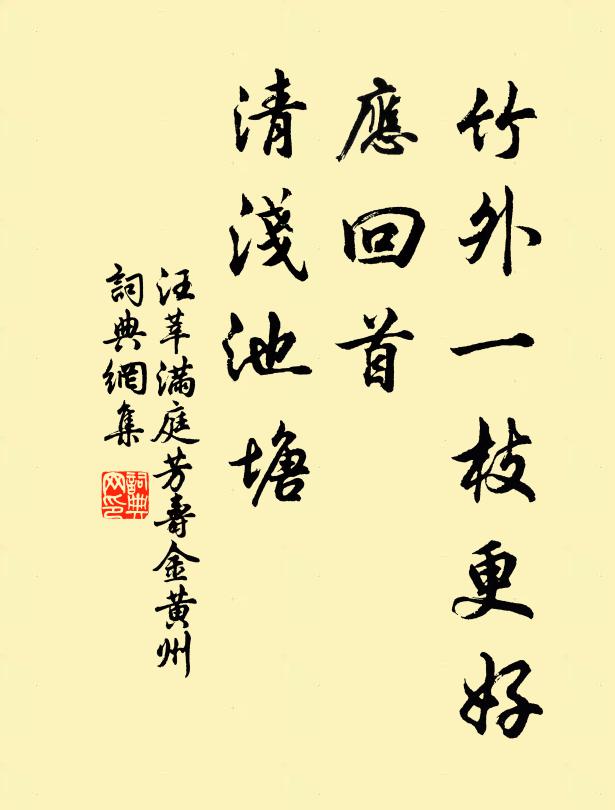 竹外一枝更好
應回首
清淺池塘
汪莘滿庭芳壽金黃州
詞典網集
詞典網印